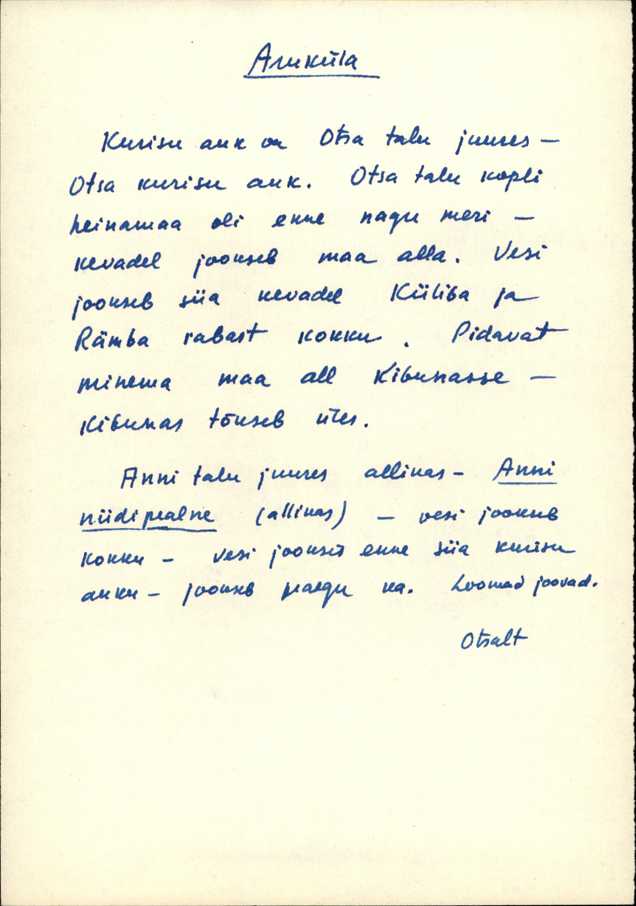 Aruküla
Kurisu auk on Otsa talu juures –
Otsa kurisu auk. Otsa talu kopli
heinamaa oli enne nagu meri –
kevadel jookseb maa alla. Vesi
jookseb siia kevadel Küliba ja
Rämba rabast kokku. Pidavat
minema maa all Kibunasse –
Kibunas tõuseb üles.
Anni talu juures allikas – Anni
niidipealne (allikas) – vesi jookseb
kokku – vesi jooksis enne siia kurisu
auku – jookseb praegu ka. Loomad joovad.
Otsalt